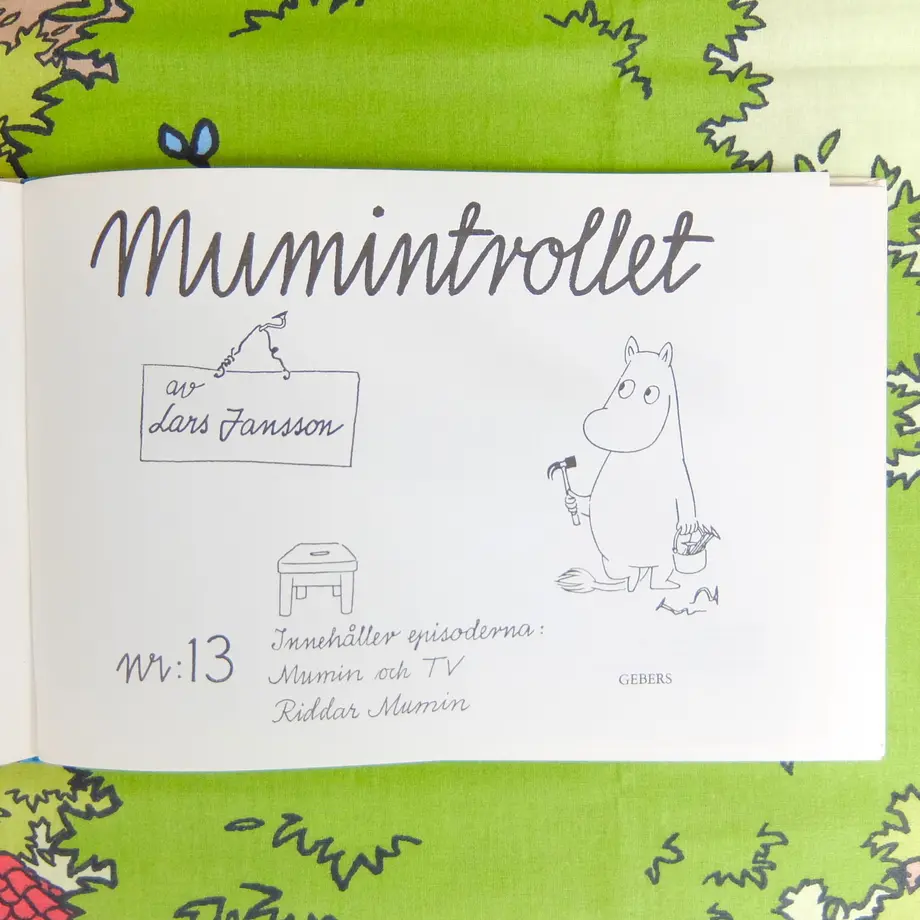 Mumintrollet
av
Lars Jansson
nr:13
Innehåller episoderna:
Mumin och TV
Riddar Mumin
GEBERS